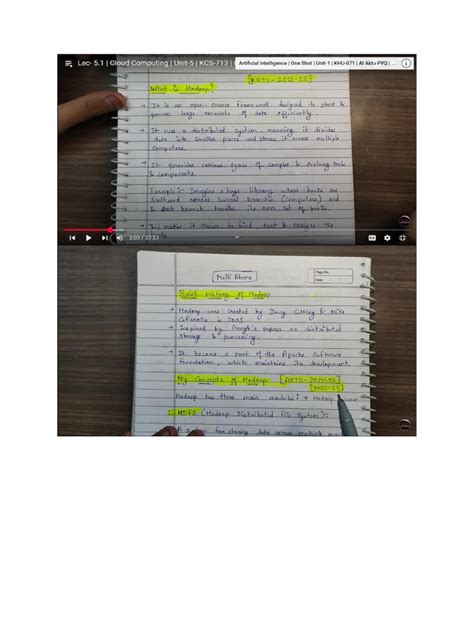 Lec- 5.1 | Cloud Computing | Unit-5 | KCS-713 |
Artificial Intelligence | One Shot | Unit-1 | KHU-071 | AI Aktu PYQ | ...
[AKTU - 2021-22]
What is Hadoop?
→ It is an open-source framework designed to store &
process large amounts of data efficiently.
→ It uses a distributed system, meaning it divides
data into smaller pieces and stores it across multiple
computers.
→ It provides various types of complex & evolving tools
& components.
Example:- Imagine a huge library where books are
scattered across several branches (computers) and
& each branch handles its own set of books.
→ This makes it easier to find
5:03 / 37:51
Multi Atoms
Page No.
Date
Brief history of Hadoop
→ Hadoop was created by Doug Cutting & Mike
Cafarella in 2005
→ Inspired by Google's papers on distributed
storage & processing.
→ It became a part of the Apache Software
Foundation, which maintains its development.
Key Concepts of Hadoop: [AKTU - 2021-22]
[2022-23]
Hadoop has three main modules: Hadoop
1. HDFS (Hadoop Distributed File System):
A system for storing data across multiple